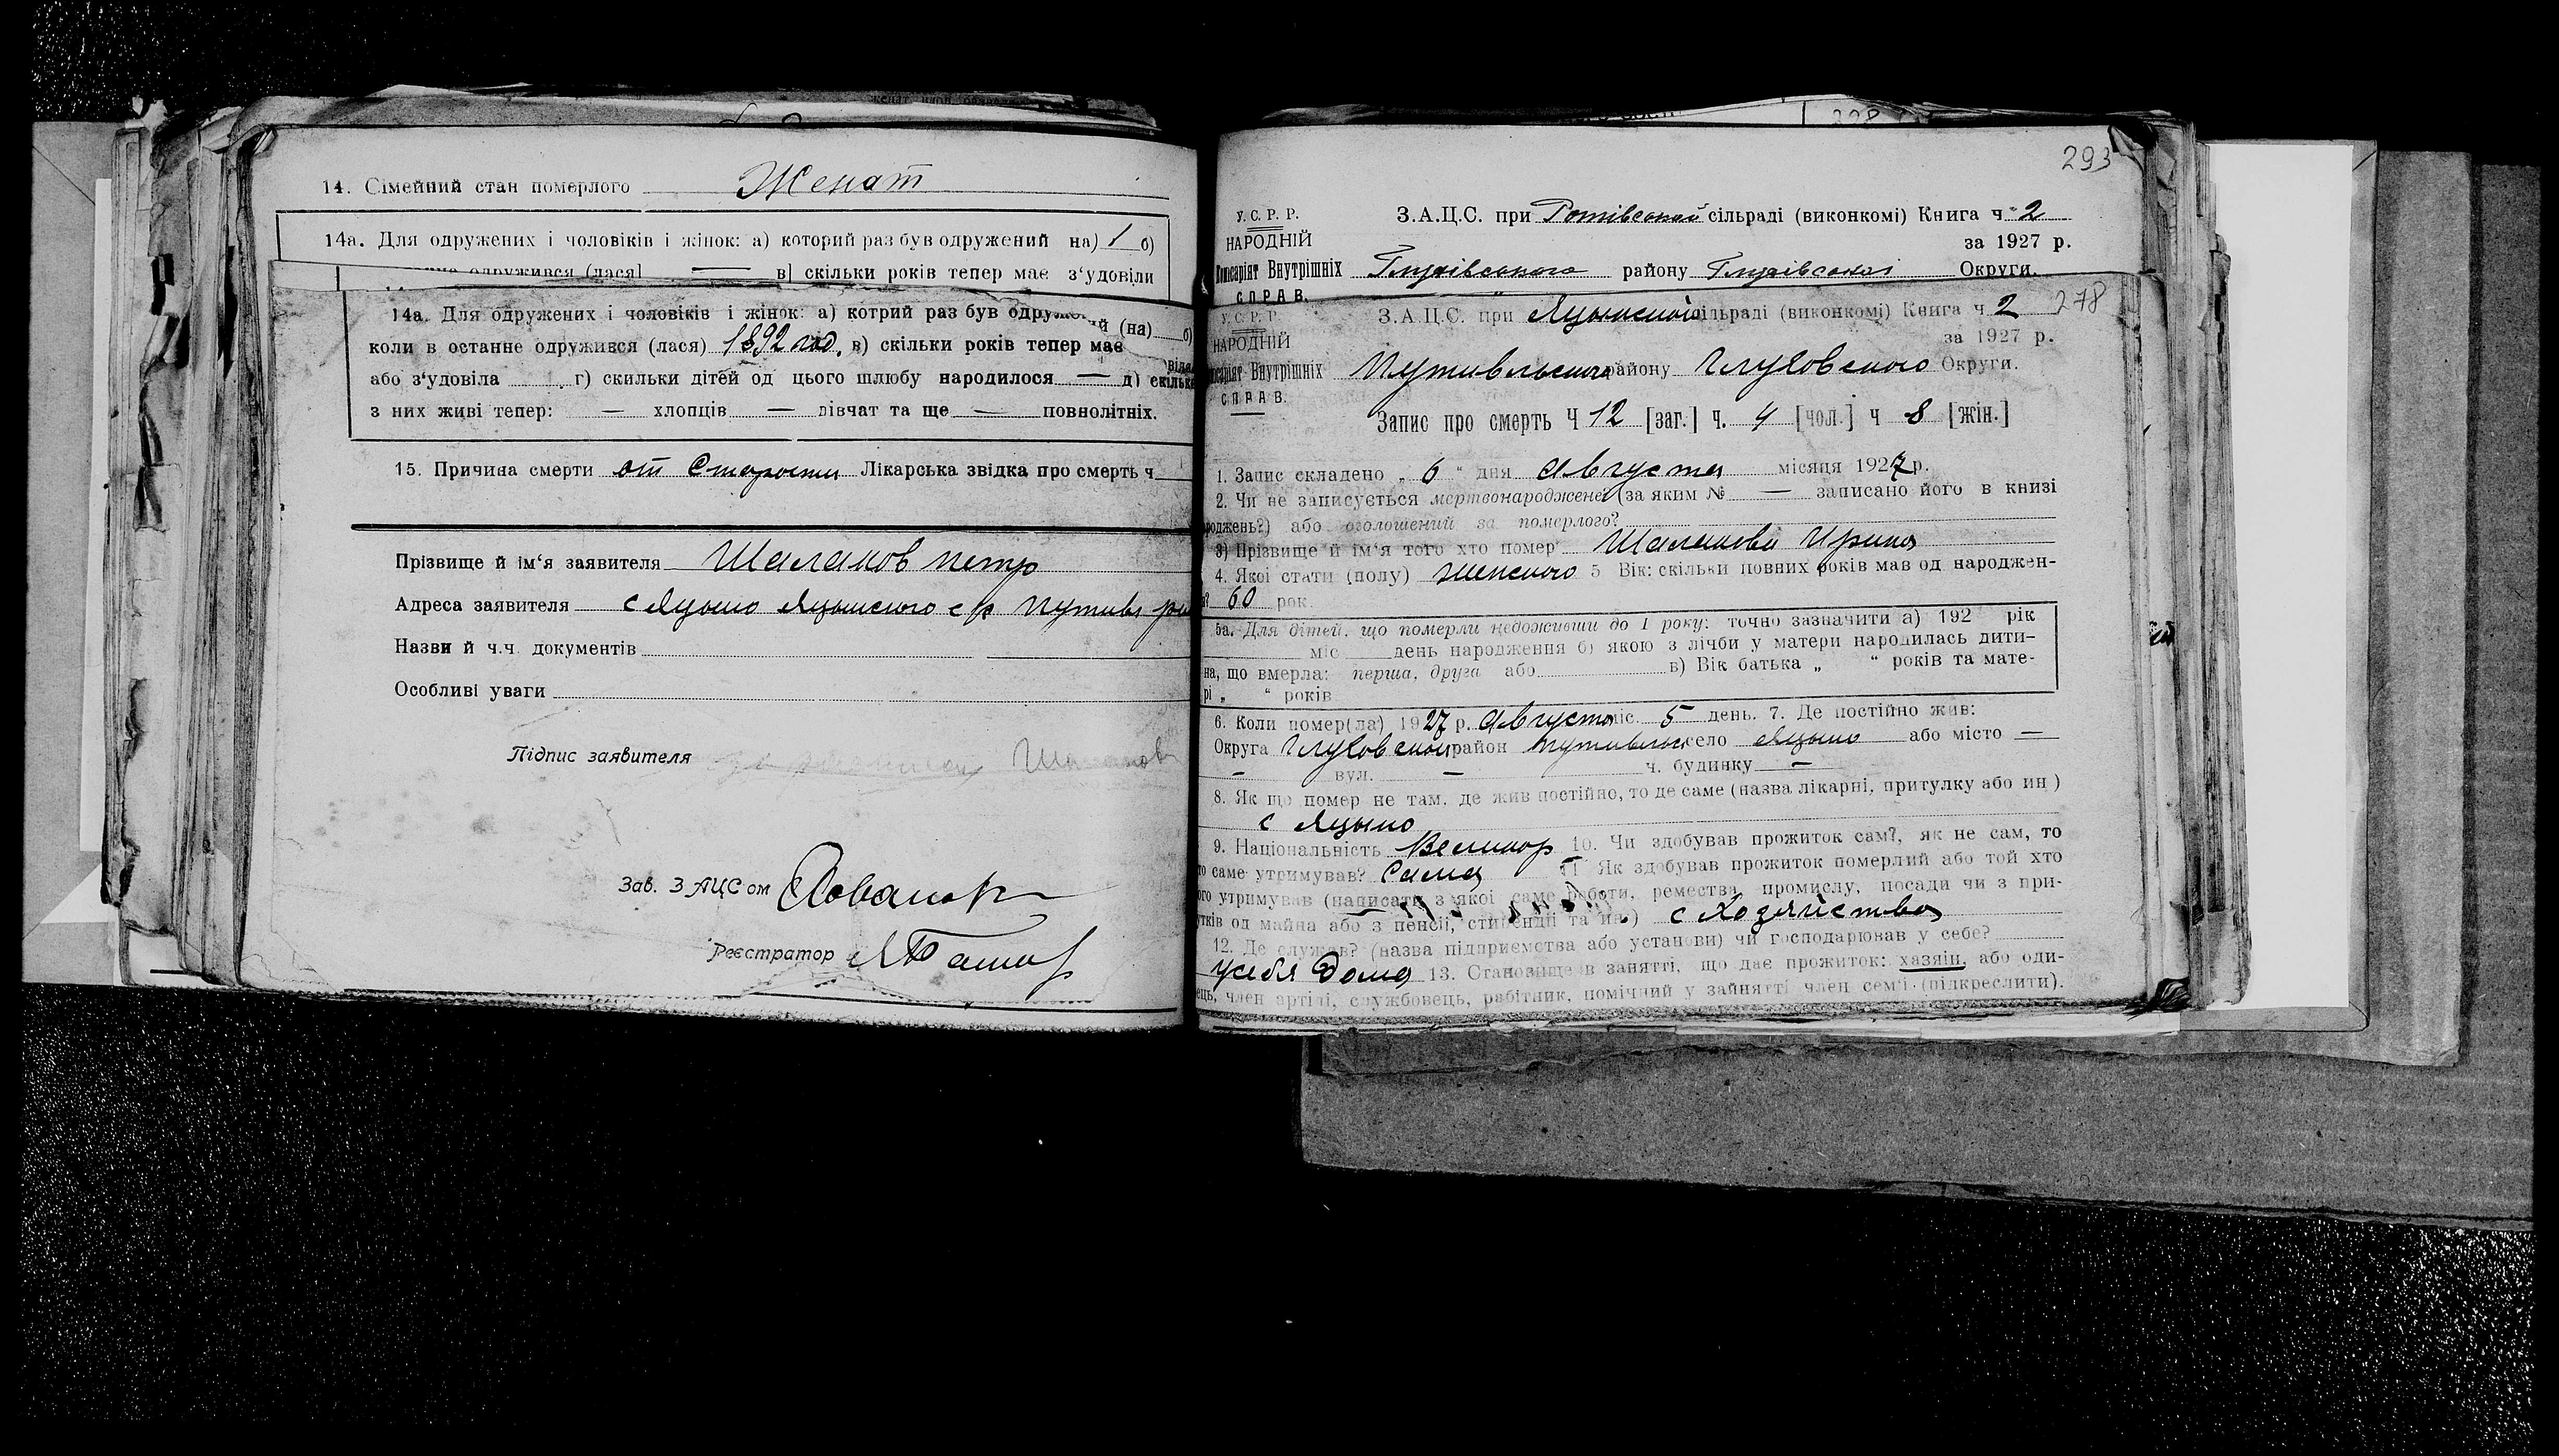 14. Сімейний стан померлого Женат
14а. Для одружених і чоловіків і жінок: а) которий раз був одружений на) 1 б)
одружився (лася) — в] скільки років тепер має з‘удовіли
14а. Для одружених і чоловіків і жінок: а) котрий раз був (на) б)
коли в останне одружився (лася) 1892 год. в) скільки років тепер має
або з‘удовіла г) скильки дітей од цього шлюбу народилося — д) скільки
з них живі тепер: — хлопців — дівчат та ще — повнолітніх.
15. Причина смерти от Старости Лікарська звідка про смерть ч
Прізвище й ім‘я заявителя Шалаков петр
Адреса заявителя с Яцыно Яцынского с р Путивл
Назви й ч.ч. документів
Особливі уваги
Підпис заявителя
Зав. ЗАЦСом
Реєстратор
293
У.С.Р.Р.
НАРОДНІЙ
Внутрішніх
СПРАВ.
З.А.Ц.С. при сільраді (виконкомі) Книга ч 2
за 1927 р.
Глухівського району Глухівської Округи.
У.С.Р.Р.
НАРОДНІЙ
Внутрішніх
СПРАВ.
З.А.Ц.С. при Яцынской сільраді (виконкомі) Книга ч 2 278
за 1927 р.
Путивльского району Глуховского Округи.
Запис про смерть Ч 12 [заг.] ч. 4 [чол.] ч 8 [жін.]
1. Запис складено „ 6 “ дня Августа місяця 1927 р.
2. Чи не записується мертвонароджений (за яким № — записано його в книзі
роджень?) або оголошений за померлого?
3) Прізвище й ім‘я того хто помер Шалакова Ирина
4. Якої стати (полу) женского 5 Вік: скільки повних років мав од народжен-
60 рок.
5а. Для дітей, що померли недоживши до 1 року: точно зазначити а) 192 рік
міс день народження б) якою з лічби у матери народилась дити-
на, що вмерла: перша, друга або в) Вік батька „ “ років та мате-
рі „ “ років
6. Коли помер(ла) 1927 р. Августа міс. 5 день. 7. Де постійно жив:
Округа Глуховской район село Яцыно або місто —
— вул. — ч. будинку —
8. Як що помер не там, де жив постійно, то де саме (назва лікарні, притулку або ин)
с Яцыно
9. Національність Великор 10. Чи здобував прожиток сам?, як не сам, то
то саме утримував? Сама 11 Як здобував прожиток померлий або той хто
ого утримував (написати з якої саме роботи, ремества промислу, посади чи з при-
утків од майна або з пенсії, стипендії та ин.) с Хозяйства
12. Де служив? (назва підприємства або установи) чи господарював у себе?
у себя дома 13. Становище в занятті, що дає прожиток: хазяїн, або оди-
ець, член артілі, службовець, рабітник, помічний у зайнятті член сем‘ї (підкреслити).